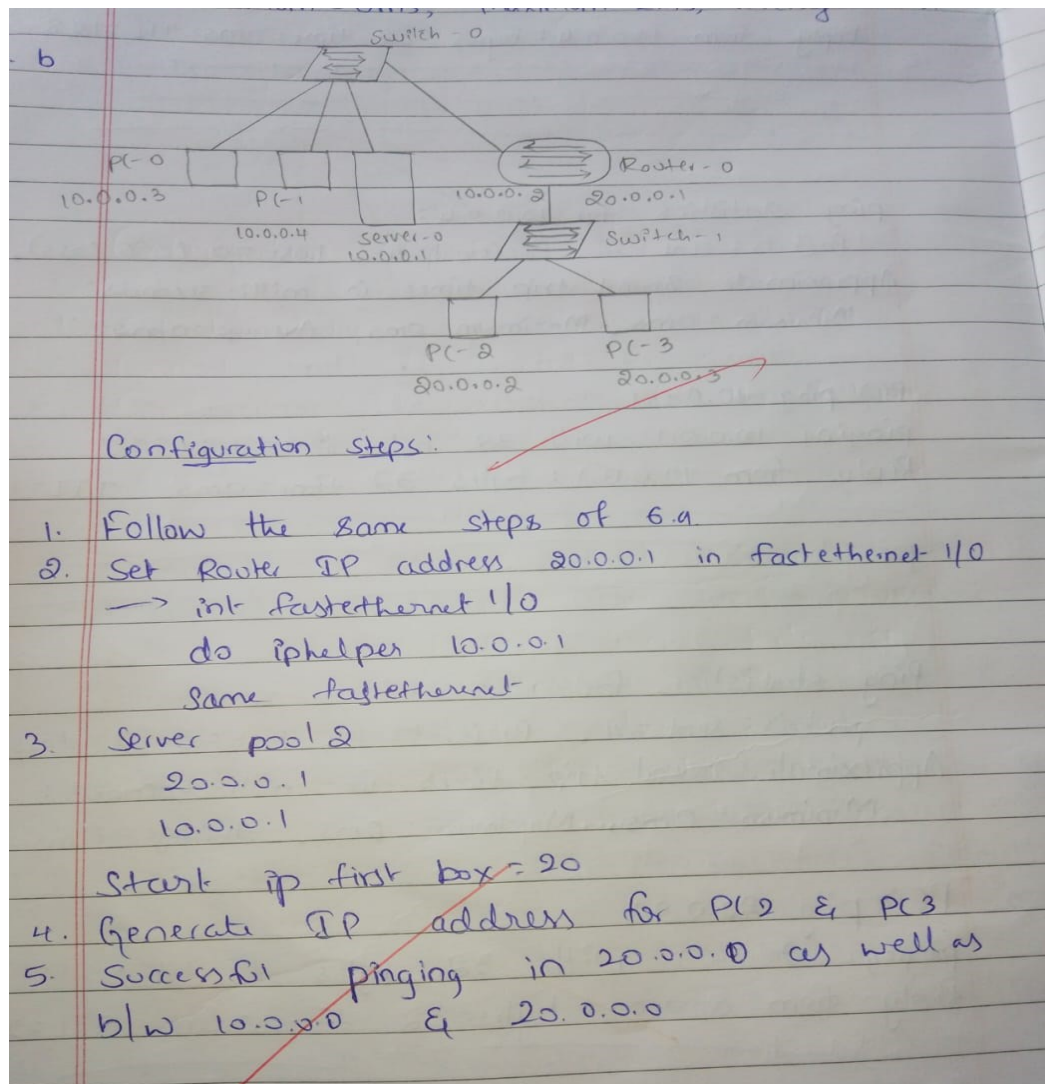 Switch - 0
b
PC-0
Router - 0
10.0.0.3
PC-1
10.0.0.2
20.0.0.1
10.0.0.4
Server-0
Switch-1
10.0.0.1
PC-2
PC-3
20.0.0.2
20.0.0.3
Configuration steps:
1. Follow the same steps of 6.a
2. Set Router IP address 20.0.0.1 in fastethernet 1/0
→ int fastethernet 1/0
do iphelper 10.0.0.1
Same fastetherenet
3. Server pool 2
20.0.0.1
10.0.0.1
Start ip first box = 20
4. Generate IP address for PC2 & PC3
5. Successful pinging in 20.0.0.0 as well as
b/w 10.0.0.0 & 20.0.0.0